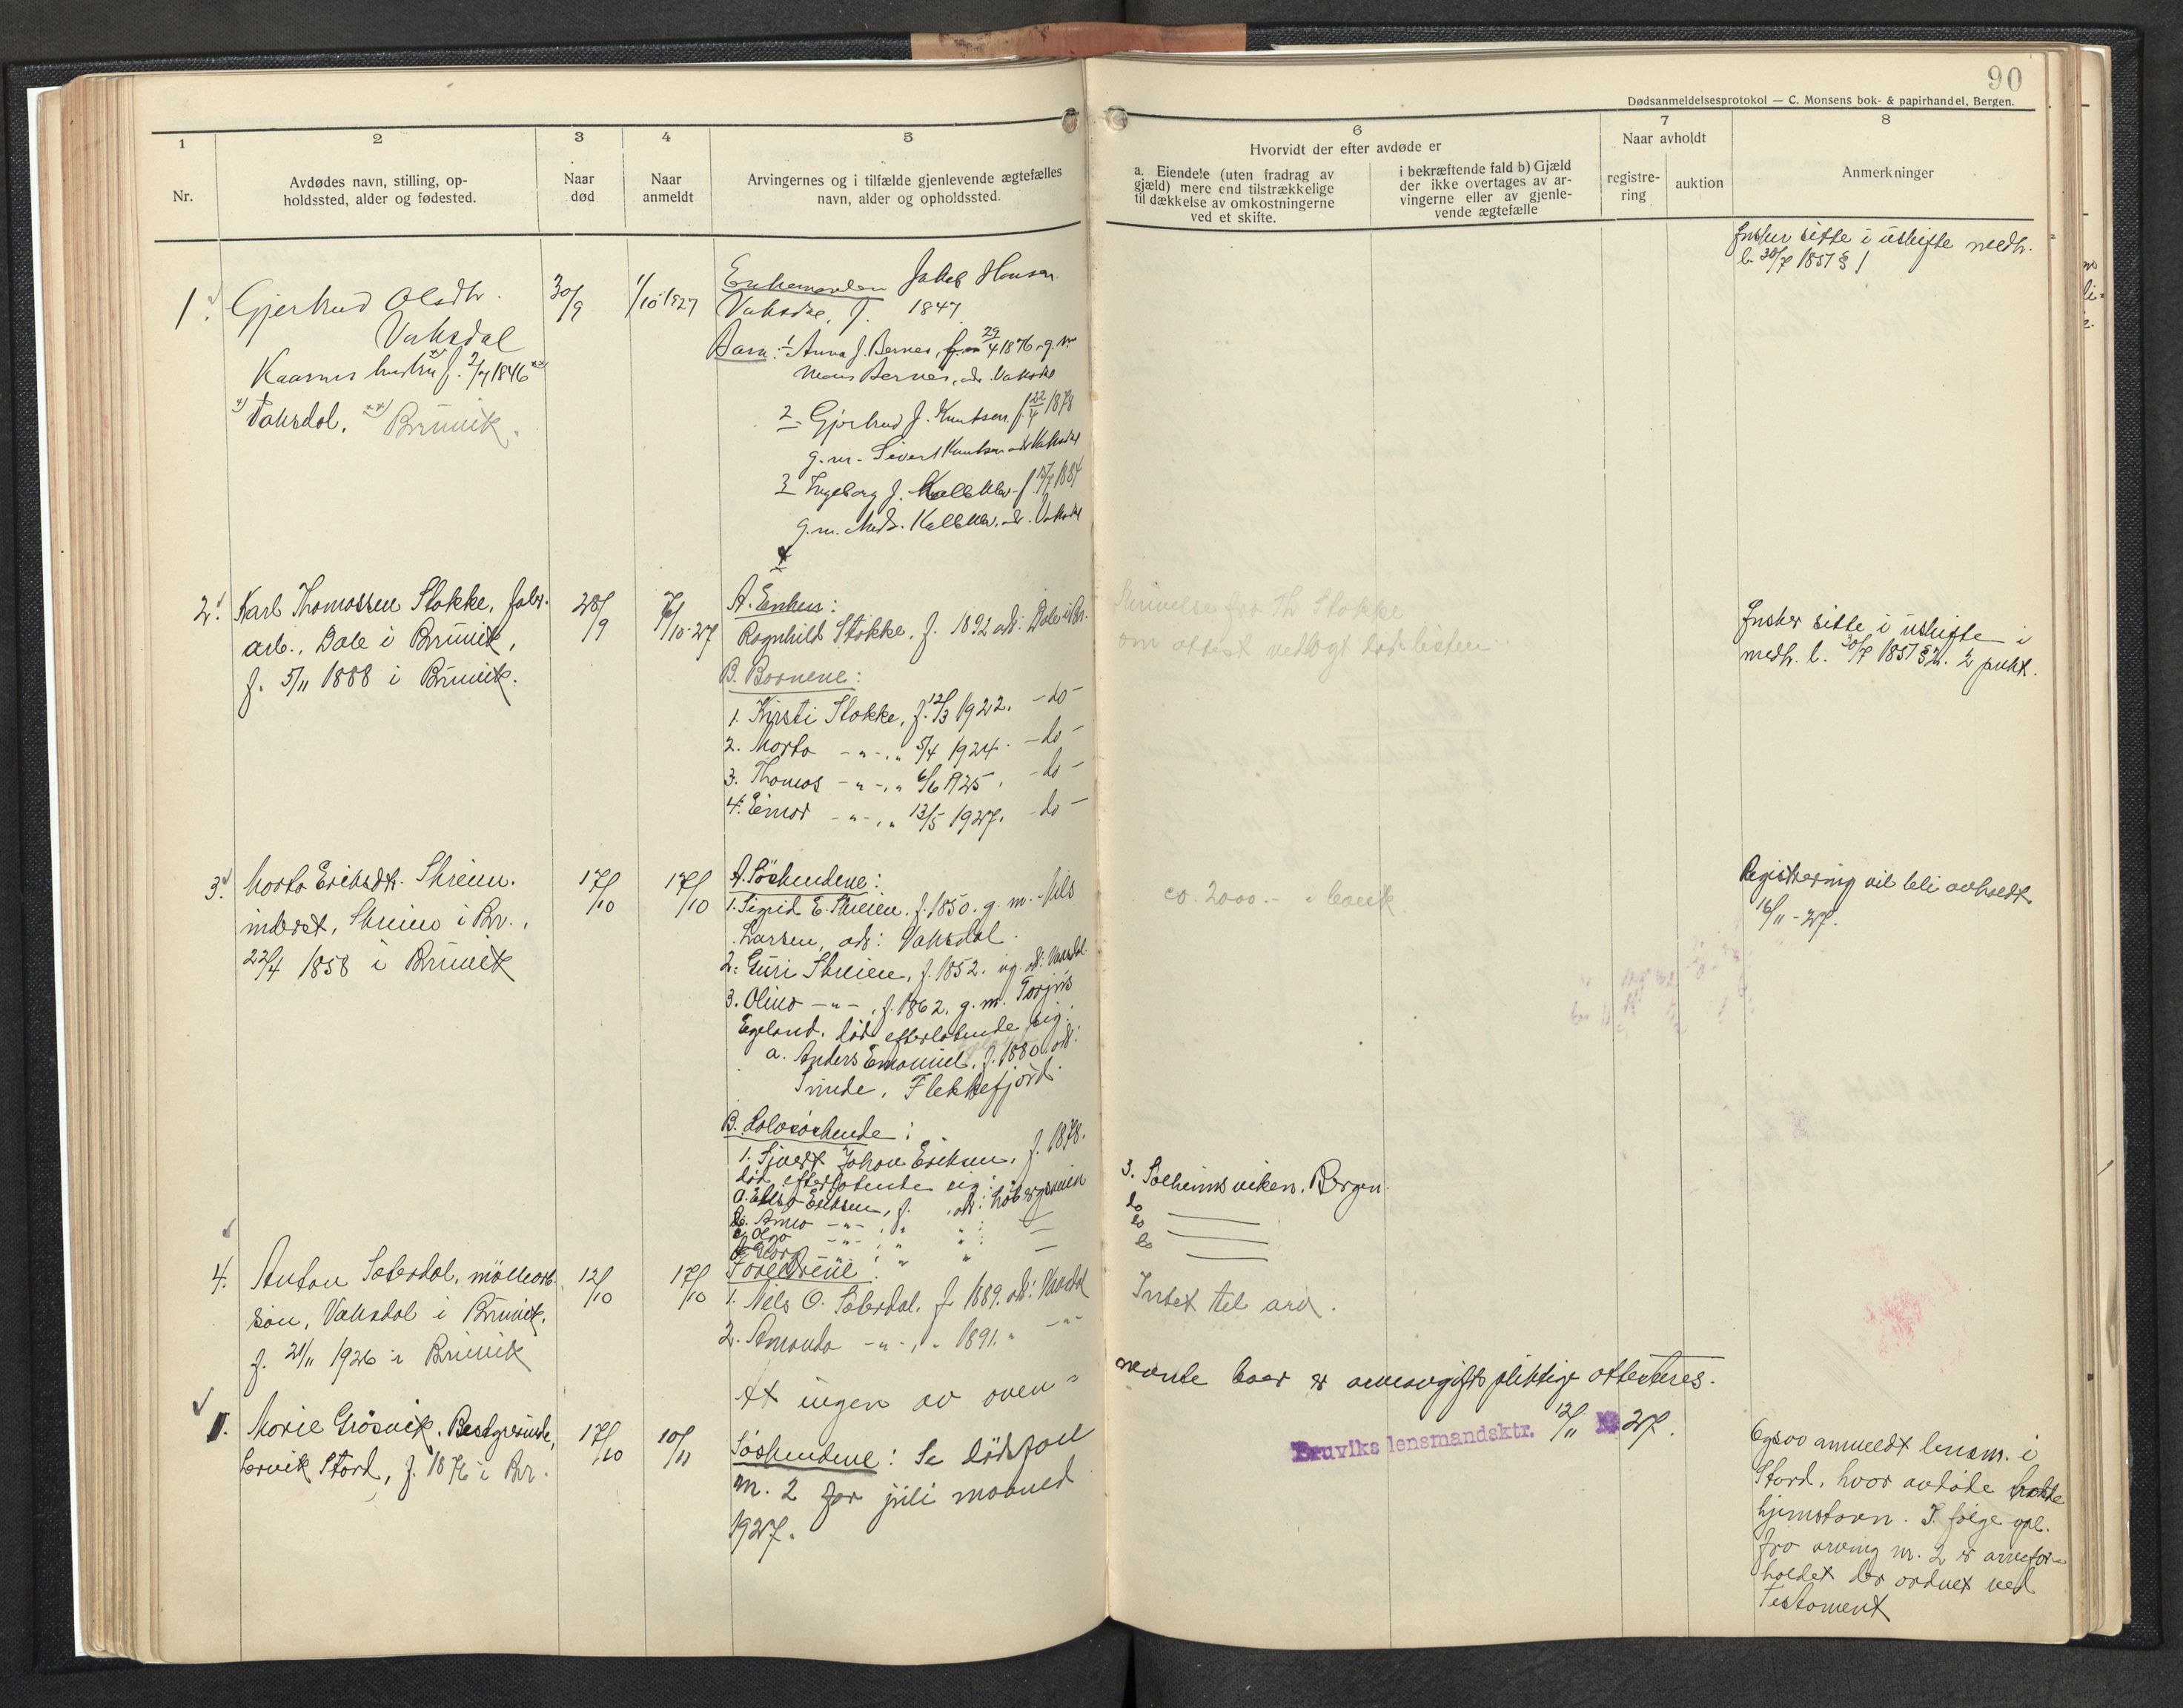 90
Dødsanmeldelsesprotokol — C. Monsens bok- & papirhandel, Bergen.
1
2
3
4
5
6
7
8
Nr.
Avdødes navn, stilling, op-
holdssted, alder og fødested.
Naar
død
Naar
anmeldt
Arvingernes og i tilfælde gjenlevende ægtefælles
navn, alder og opholdssted.
Hvorvidt der efter avdøde er
a. Eiendele (uten fradrag av
gjæld) mere end tilstrækkelige
til dækkelse av omkostningerne
ved et skifte.
i bekræftende fald b) Gjæld
der ikke overtages av ar-
vingerne eller av gjenle-
vende ægtefælle
Naar avholdt
registre-
ring
auktion
Anmerkninger
1.
Gjertrud Olsdtr.
Vaksdal
Kaarmes hustru f. 2/7 1846
Vaksdal. Bruvik.
30/9
1/10 1927
Enkemanden Jakob Hansen
Vaksdal, f. 1847
Barn: 1 Anna J. Bernes, 29/4 1876. g. m.
Mons Bernes, adr. Vaksdal
2. Gjertrud J. Knutsen f. 22/4 1878
g. m. Sivert Knutsen adr Vaksdal
3 Ingeborg J. f. 1884
g. m. adr. Vaksdal
Ønsker sitte i uskifte medh.
l. 30/7 1851 § 1
2.
Karl Thomassen Stokke, fabr.
arb., Dale i Bruvik,
f. 5/11 1888 i Bruvik.
28/9
7/10-27
A. Enken:
Ragnhild Stokke, f. 1892 adr: Dale i Br.
B. Barnene:
1. Kirsti Stokke, f. 12/3 1922. -do-
2. Marta -"-, " 5/4 1924. -do-
3. Thomas -"-, " 6/6 1925. -do-
4. Einar -"-, " 13/5 1927. -do-
Skrivelse fra Th. Stokke
om attest vedlagt dødslisten
Ønsker sitte i uskifte i
medh. l. 30/7 1851 § 2. 2 punkt.
3.
Marta Eriksdtr. Skreien.
inderst, Skreien i Br.,
22/4 1858 i Bruvik
17/10
17/10
A. Söskendene:
1. Sigrid E. Skreien. f. 1850. g. m. Nils
Larsen, adr: Vaksdal.
2. Guri Skreien, f. 1852. ug. adr: Vaksdal.
3. Olina -"-, f. 1862, g. m. Torjus
Egeland, död efterlatende sig:
a. Anders Emanuel, f. 1880. adr:
Sinde, Flekkefjord.
B. Halvsöskende:
1. Sjurt Johan Eriksen, f. 1878.
död efterlatende sig:
a. Eriksen, f. , adr:
-"-
-"-
ca. 2000.- i bank.
3. Solheimsviken, Bergen.
do
do
do
Registrering vil bli avholdt
16/11-27.
4.
Anton Sæterdal, möllearb.
sön, Vaksdal i Bruvik.
f. 21/11 1926 i Bruvik
12/10
17/10
Foreldrene
1. Nils O. Sæterdal. f. 1889. adr: Vaksdal
2. Amanda -"-, " 1891. " -"-
Intet til arv.
At ingen av oven-
nævnte boer er arveavgiftspliktige attesteres.
Bruviks lensmandsktr. 12/11 27.
1.
Marie Gråsvik. Bestyrerinde,
Lervik Stord, f. 1876 i Br.
17/10
10/11
Söskendene: Se dödsfall
nr. 2 for juli maaned
1927.
Ogsaa anmeldt lensm. i
Stord, hvor avdöde hadde
hjemstavn. I fölge opl.
fra arving nr. 2 er arvefor-
holdet der ordnet ved
Testament